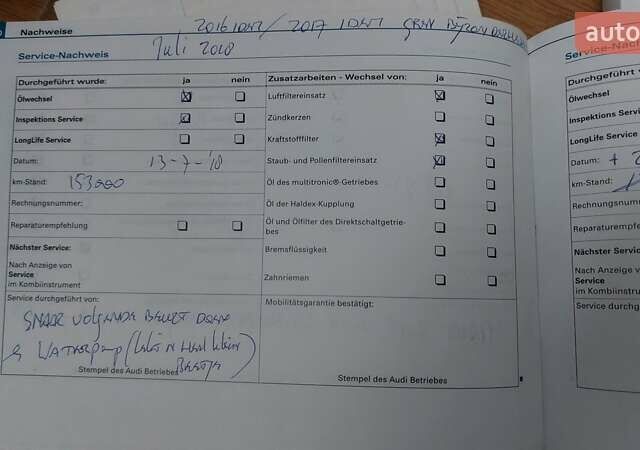 Nachweise
2016 / 2017
auto
Service-Nachweis
Juli 2018
Durchgeführt wurde: ja nein
Ölwechsel
Inspektions Service
LongLife Service
Datum: 13-7-'18
km-Stand: 153000
Rechnungsnummer:
Reparaturempfehlung
Nächster Service:
Nach Anzeige von
Service
im Kombiinstrument
Service durchgeführt von:
SNAAR VOLGENDE BEURT DOEN
& WATERpomp
Stempel des Audi Betriebes
Zusatzarbeiten - Wechsel von: ja nein
Luftfiltereinsatz
Zündkerzen
Kraftstofffilter
Staub- und Pollenfiltereinsatz
Öl des multitronic®-Getriebes
Öl der Haldex-Kupplung
Öl und Ölfilter des Direktschaltgetrie-
bes
Bremsflüssigkeit
Zahnriemen
Mobilitätsgarantie bestätigt:
Stempel des Audi Betriebes
Durchgeführt wurde:
Ölwechsel
Inspektions Service
LongLife Service
Datum:
km-Stand:
Rechnungsnummer:
Reparaturempfehlung
Nächster Service:
Nach Anzeige von
Service
im Kombiinstrument
Service durchgeführt